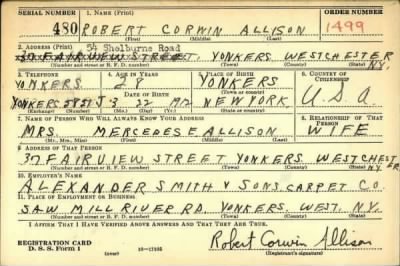 SERIAL NUMBER 1. NAME (Print) ORDER NUMBER
480 ROBERT CORWIN ALLISON 1499
(First) (Middle) (Last)
2. ADDRESS (Print) 54 Shelburne Road
37 FAIRVIEW STREET, YONKERS WESTCHESTER N.Y.
(Number and street or R. F. D. number) (Town) (County) (State)
3. TELEPHONE 4. AGE IN YEARS 5. PLACE OF BIRTH 6. COUNTRY OF CITIZENSHIP
YONKERS 28 YONKERS
DATE OF BIRTH (Town or county)
YONKERS 5851 J 3 22 1912 NEW YORK U.S.A
(Exchange) (Number) (Mo.) (Day) (Yr.) (State or country)
7. NAME OF PERSON WHO WILL ALWAYS KNOW YOUR ADDRESS 8. RELATIONSHIP OF THAT PERSON
MRS. MERCEDES E ALLISON WIFE
(Mr., Mrs., Miss) (First) (Middle) (Last)
9. ADDRESS OF THAT PERSON
37 FAIRVIEW STREET YONKERS WESTCHEST N.Y. ER
(Number and street or R. F. D. number) (Town) (County) (State)
10. EMPLOYER'S NAME
ALEXANDER SMITH & SONS CARPET CO
11. PLACE OF EMPLOYMENT OR BUSINESS
SAW MILL RIVER RD. YONKERS, WEST. N.Y.
(Number and street or R. F. D. number) (Town) (County) (State)
I AFFIRM THAT I HAVE VERIFIED ABOVE ANSWERS AND THAT THEY ARE TRUE.
REGISTRATION CARD
D. S. S. Form 1 16-17105 Robert Corwin Allison
(Registrant's signature)